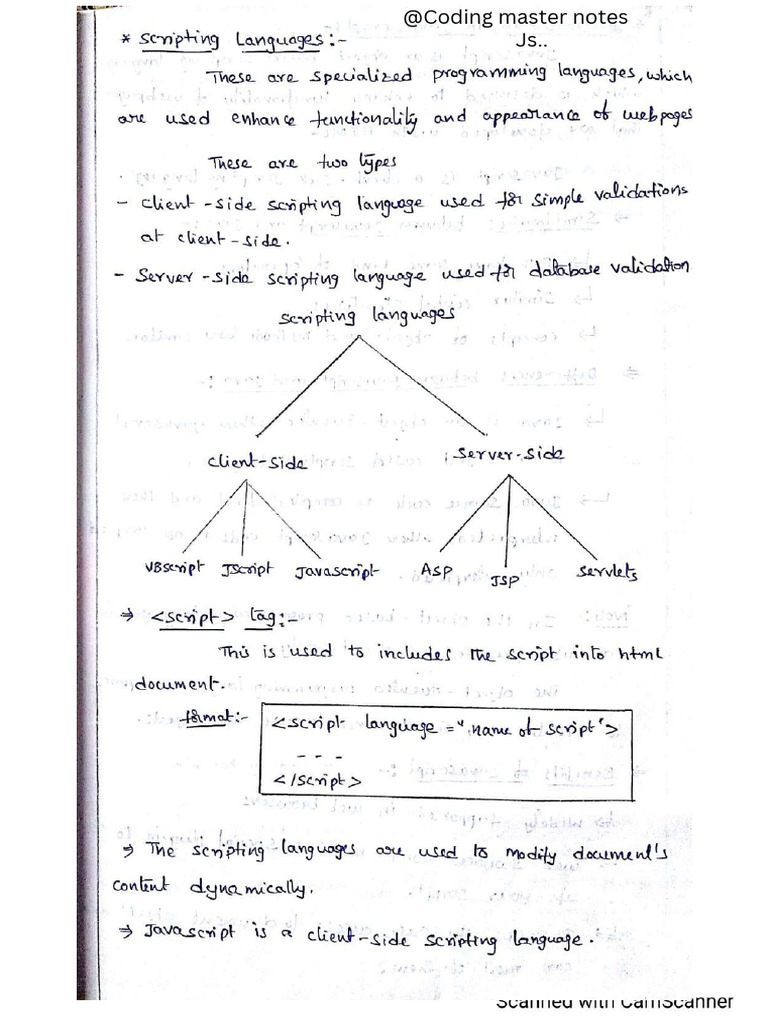 @Coding master notes
Js..
* Scripting Languages:-
These are specialized programming languages, which
are used enhance functionality and appearance of webpages
These are two types
- client-side scripting language used for simple validations
at client-side.
- Server-side scripting language used for database validation
Scripting languages
Client-Side Server-Side
VBscript JScript Javascript ASP JSP Servlets
⇒ <script> tag:-
This is used to includes the script into html
document.
format:- <script language = "name of script">
- - -
</script>
⇒ The scripting languages are used to modify document's
content dynamically.
⇒ Javascript is a client-side scripting language.
Scanned with CamScanner